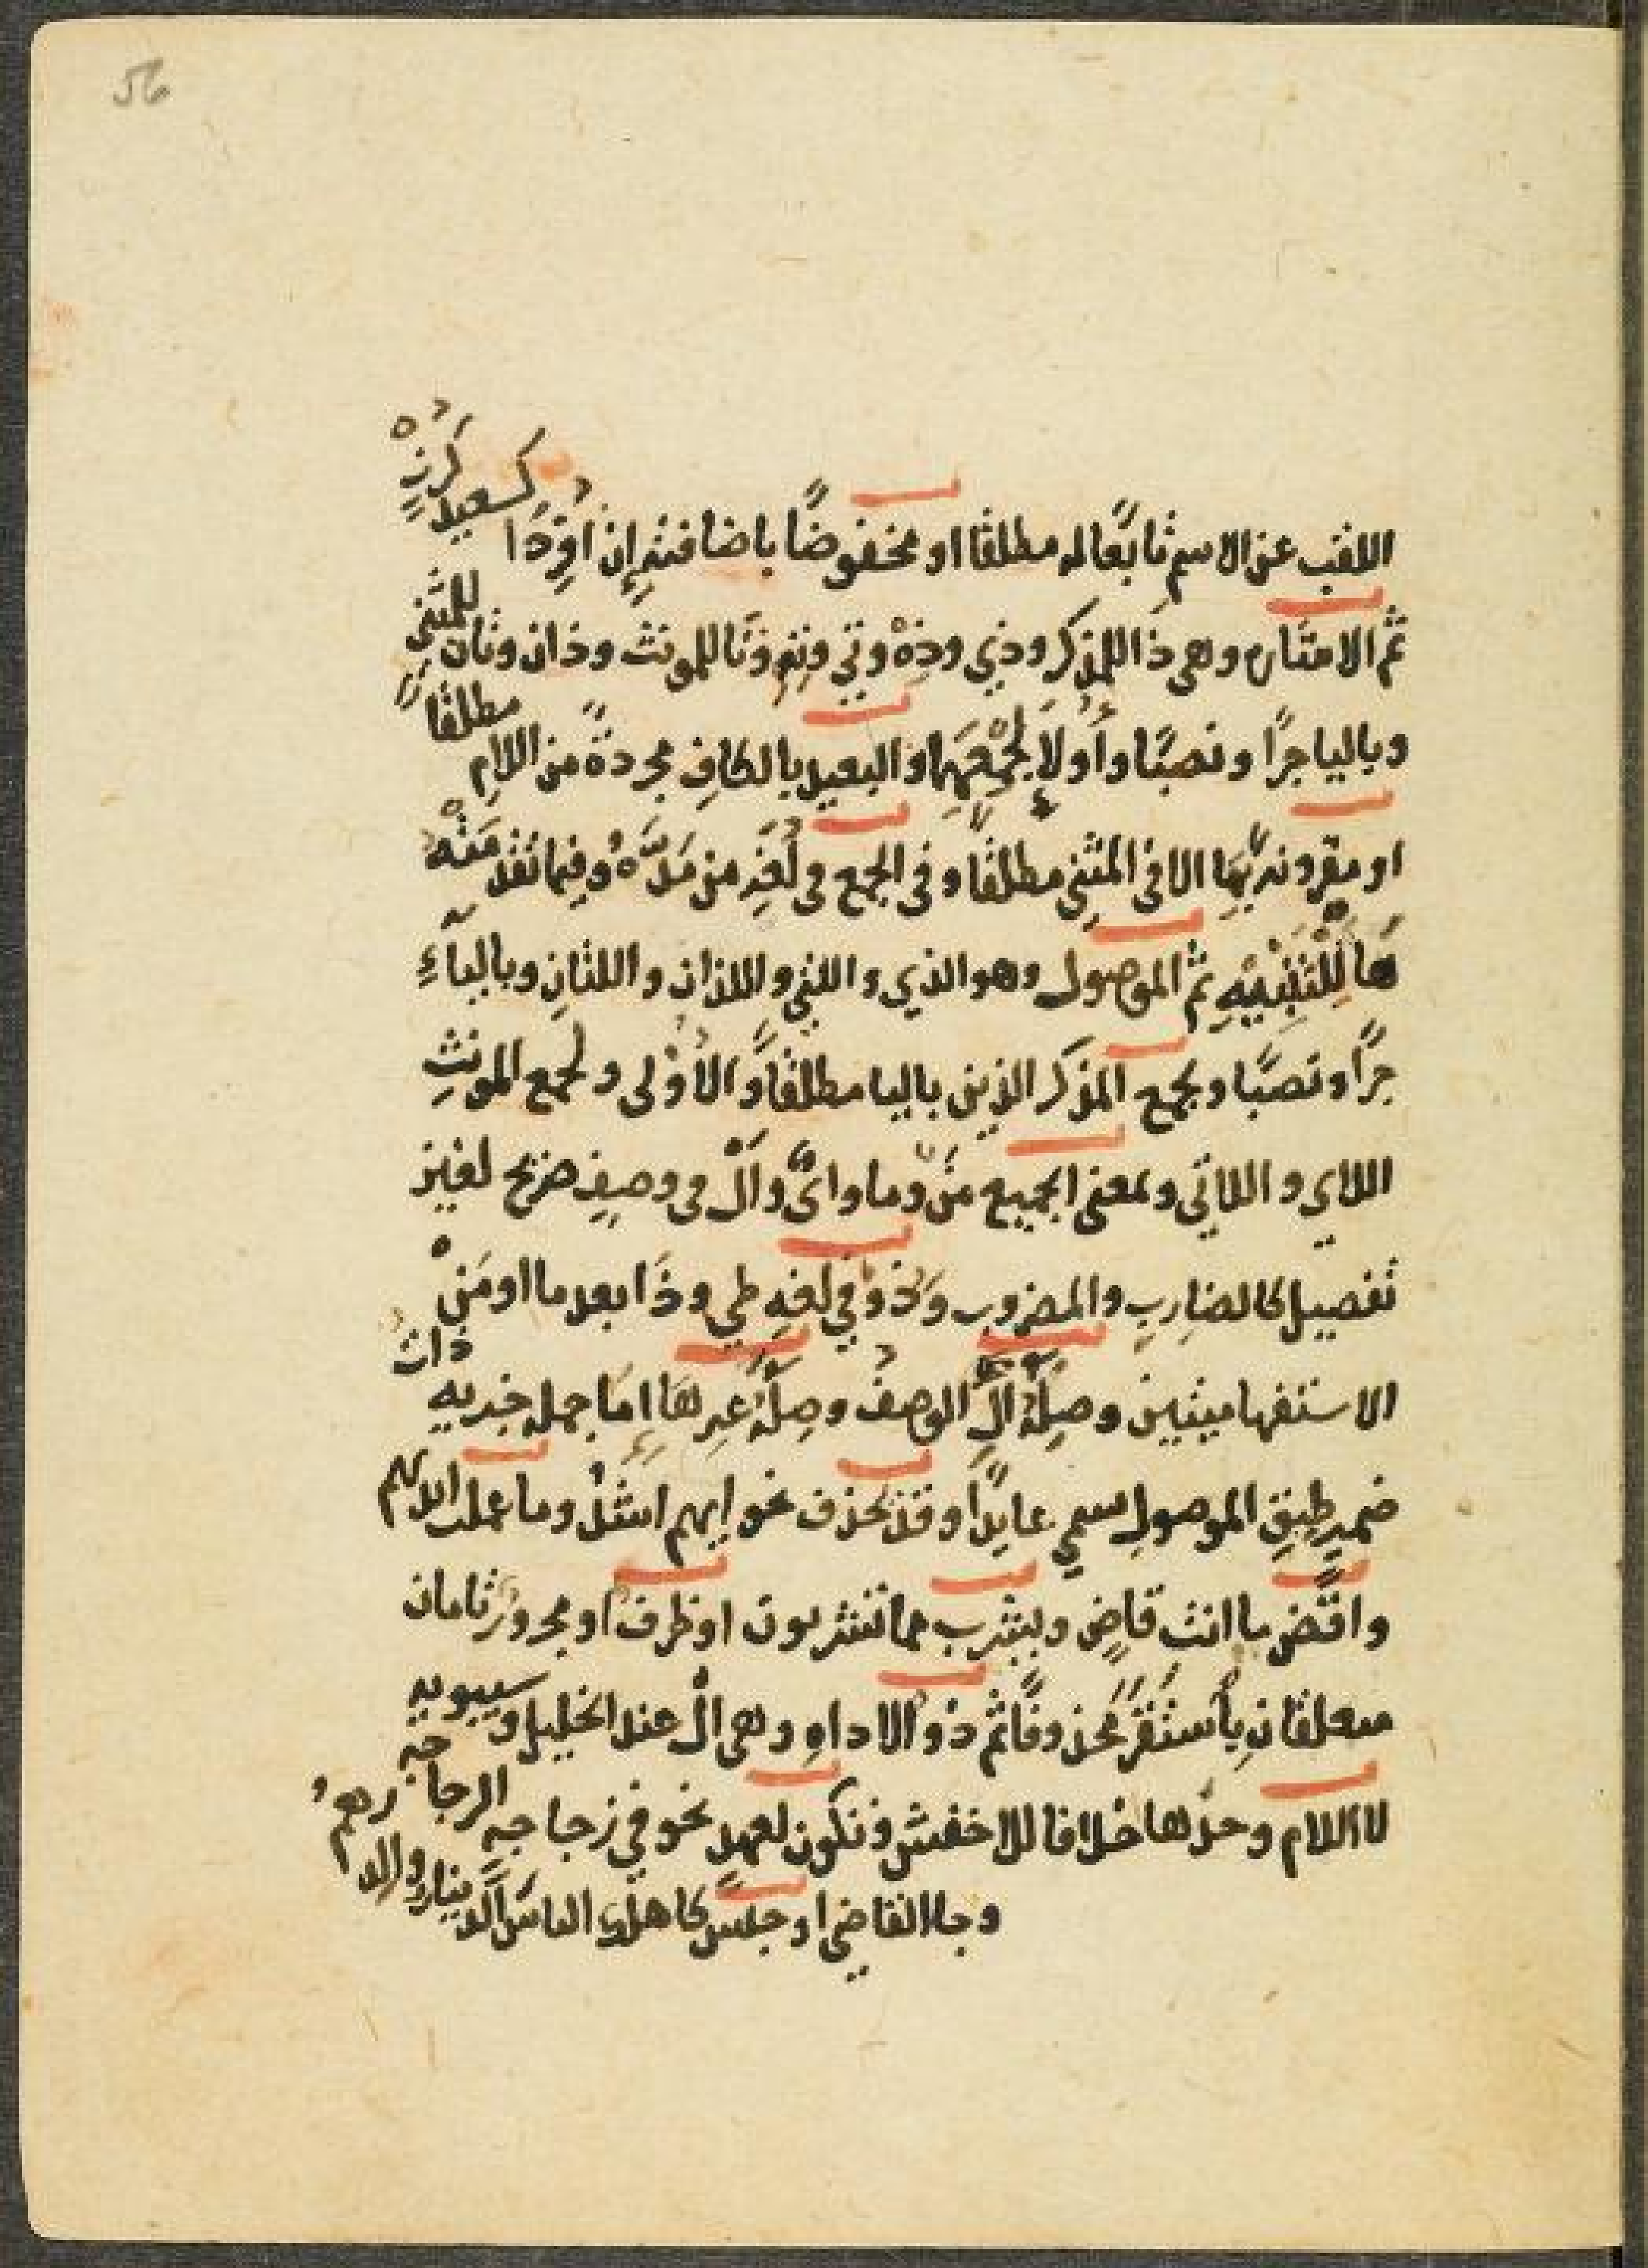 56
اللقب عن الاسم تابعًا له مطلقًا او مخفوضًا باضافته إن اُفرِدَا كسعيد كُرْزٍ
ثم الاشاره وهى ذَا للمذكر وذِي وذِهْ وتِي وتِهِ وتَا للمونث وذان وتان للمثنى
وبالياء جرًا ونصبًا واُولَاءِ لجَمْعِهِما والبعيد بالكافِ مجردةً من اللامِ مطلقًا
او مقرونه بِهَا الا فى المثنى مطلقًا وفى الجمع فى لُغَةِ من مَدَّهُ وفيما تقدَمَتْهُ
هَا لِلْتَنْبِيْهِ ثم الموصول وهو الذي والتي واللذان واللتانِ وبالياءِ
جرًا ونصبًا ولجمع المذكر الذين باليا مطلقًا والاُوْلى ولجمع المونثِ
اللاي واللاتي وبمعنى الجميع مَنْ وما واىٌّ وألْ فى وصفٍ صريح لغير
تفضيل كالضارِبِ والمضروب وذُوْ في لغهِ طي وذَا بعد ما او مَنْ
الاستفهاميتين وصِلَةُ الِ الوصفُ وصِلَةُ غيرِهَا إمَا جمله خبريه ذات
ضميرٍ طبقٍ الموصولِ سمي عايدًا وقد يُحذف نحو ايهم اشدُ وما عملت ايديهم
واقض ما انت قاضٍ ويشرب مما تشربون او ظرف او مجرور تامان
متعلقانِ بأستَقَرَ محذوفًا ثم ذو الاداهِ وهى الْ عند الخليل وسيبويه
لا اللام وحدَها خلافا للاخفش وتكون لعهدٍ نحو في زجاجه الزجاجه
وجا القاضي او جنسٍ كاهلك الناسَ الدينارُ والدرهمُ